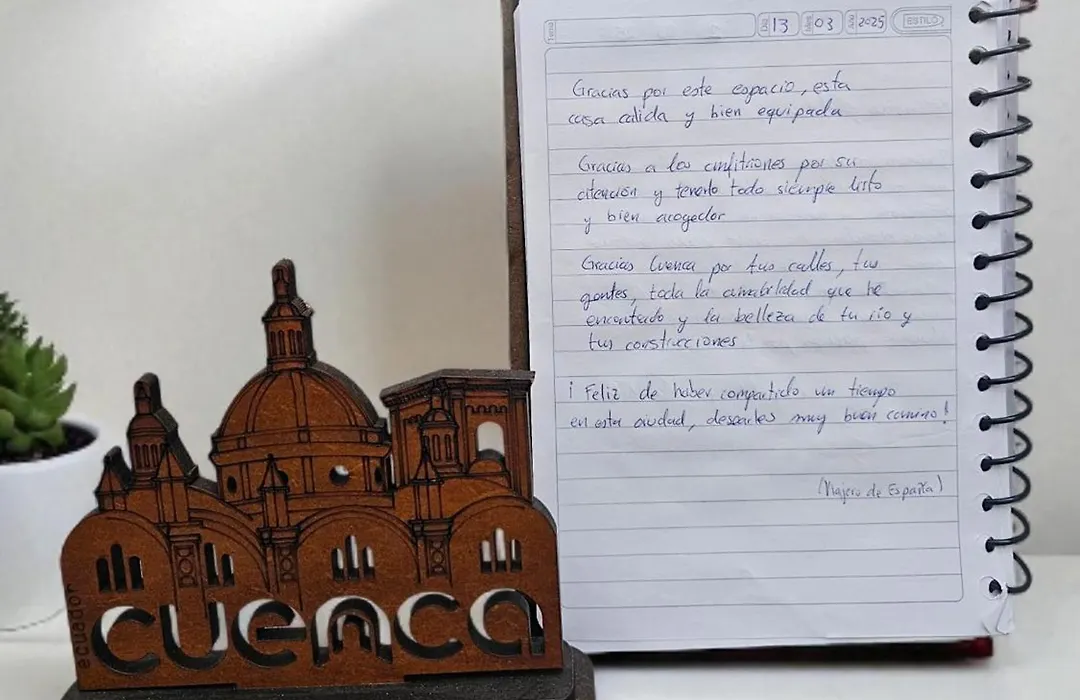 Tema
Día 13 Mes 03 Año 2025 ESTILO
Gracias por este espacio, esta
casa calida y bien equipada
Gracias a los anfitriones por su
atención y tenerlo todo siempre listo
y bien acogedor
Gracias Cuenca por tus calles, tus
gentes, toda la amabilidad que he
encontrado y la belleza de tu rio y
tus construcciones
¡ Feliz de haber compartido un tiempo
en esta ciudad, desearles muy buen camino!
(Viajero de España)
ecuador
cuenca